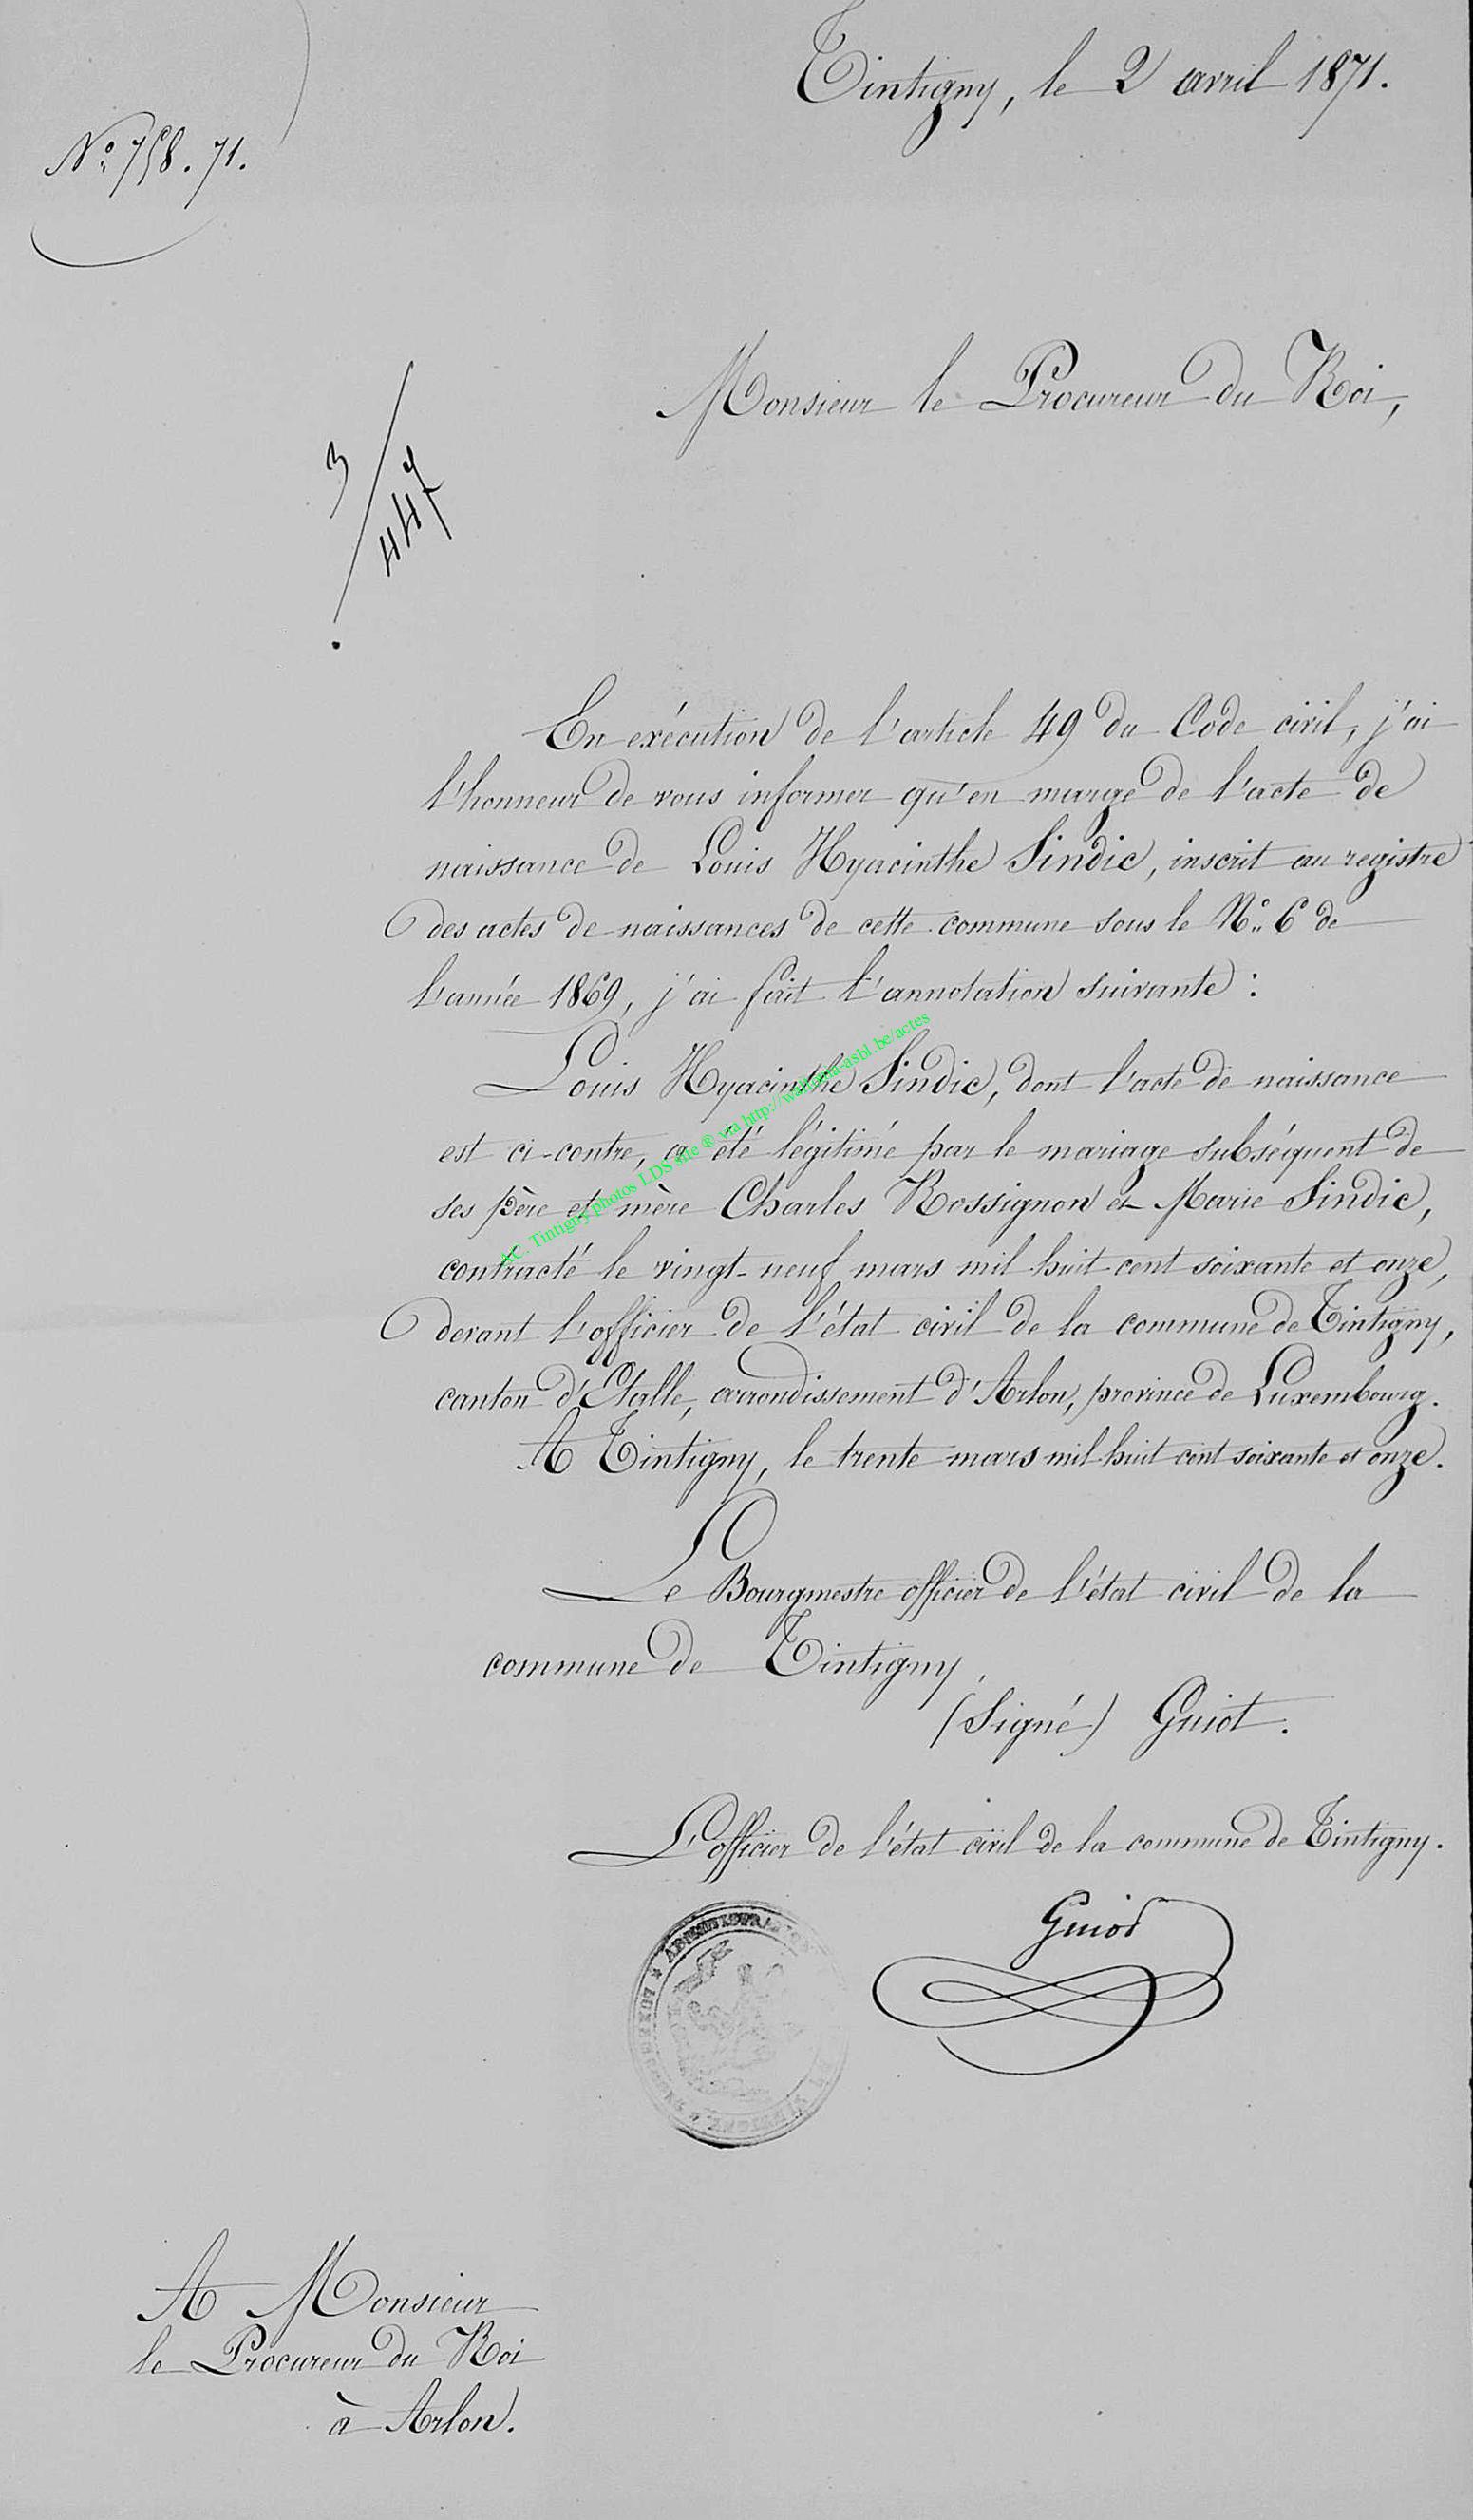 Tintigny, le 2 avril 1871.
N° 758. 71.
Monsieur le Procureur du Roi,
3
447
En exécution de l'article 49 du Code civil, j'ai
l'honneur de vous informer qu'en marge de l'acte de
naissance de Louis Hyacinthe Sindic, inscrit au registre
des actes de naissances de cette commune sous le N° 6 de
l'année 1869, j'ai fait l'annotation suivante :
Louis Hyacinthe Sindic, dont l'acte de naissance
est ci-contre, a été légitimé par le mariage subséquent de
ses père et mère Charles Rossignon et Marie Sindic,
contracté le vingt-neuf mars mil huit cent soixante et onze,
devant l'officier de l'état civil de la commune de Tintigny,
canton d'Etalle, arrondissement d'Arlon, province de Luxembourg.
A Tintigny, le trente mars mil huit cent soixante et onze.
Le Bourgmestre officier de l'état civil de la
commune de Tintigny,
(Signé) Guiot.
L'officier de l'état civil de la commune de Tintigny.
Guiot
A Monsieur
le Procureur du Roi
à Arlon.
AC. Tintigny photos LDS site ® via http://wallonia-asbl.be/actes